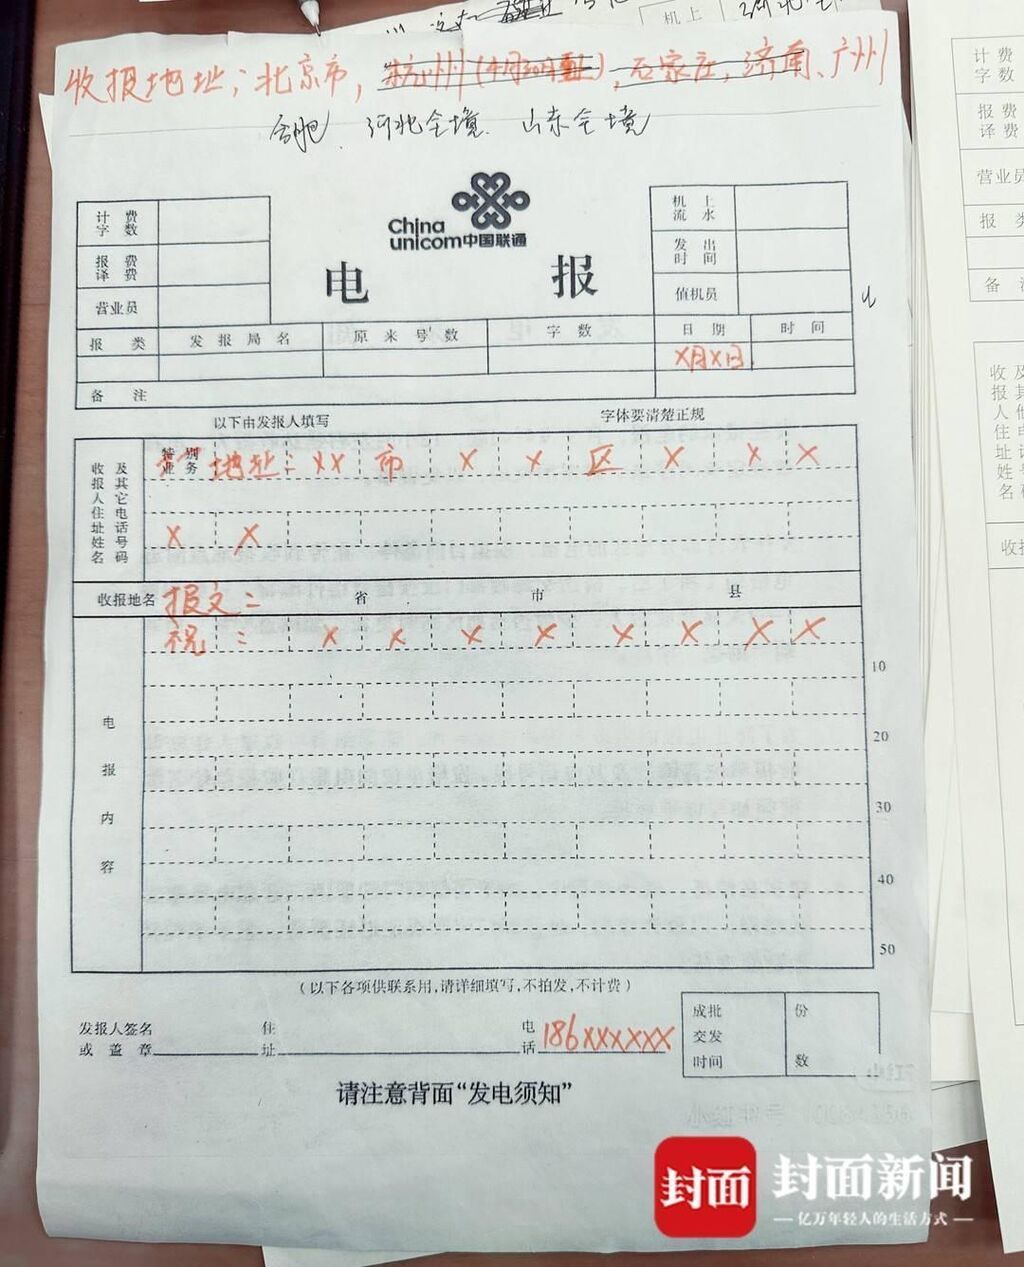 收报地址；北京市，杭州(4月30日截止)，石家庄，济南、广州
合肥、河北全境、山东全境
计费字数
机上流水
China unicom中国联通
报费译费
发出时间
电 报
营业员
值机员
报类 发报局名 原来号数 字数 日期 时间
X月X日
备注
以下由发报人填写 字体要清楚正规
收报人住址姓名 及其它电话号码
特别业务 地址：XX市XX区XXX
XX
收报地名 报文： 省 市 县
祝：XXXXXXXX
10
电报内容
20
30
40
50
(以下各项供联系用,请详细填写,不拍发,不计费)
发报人签名或盖章 住址 电话 186XXXXXX
成批交发时间 份数
请注意背面“发电须知”
封面 封面新闻
亿万年轻人的生活方式
机上
计费字数
报费译费
营业员
报
备
收报人住址姓名
收报